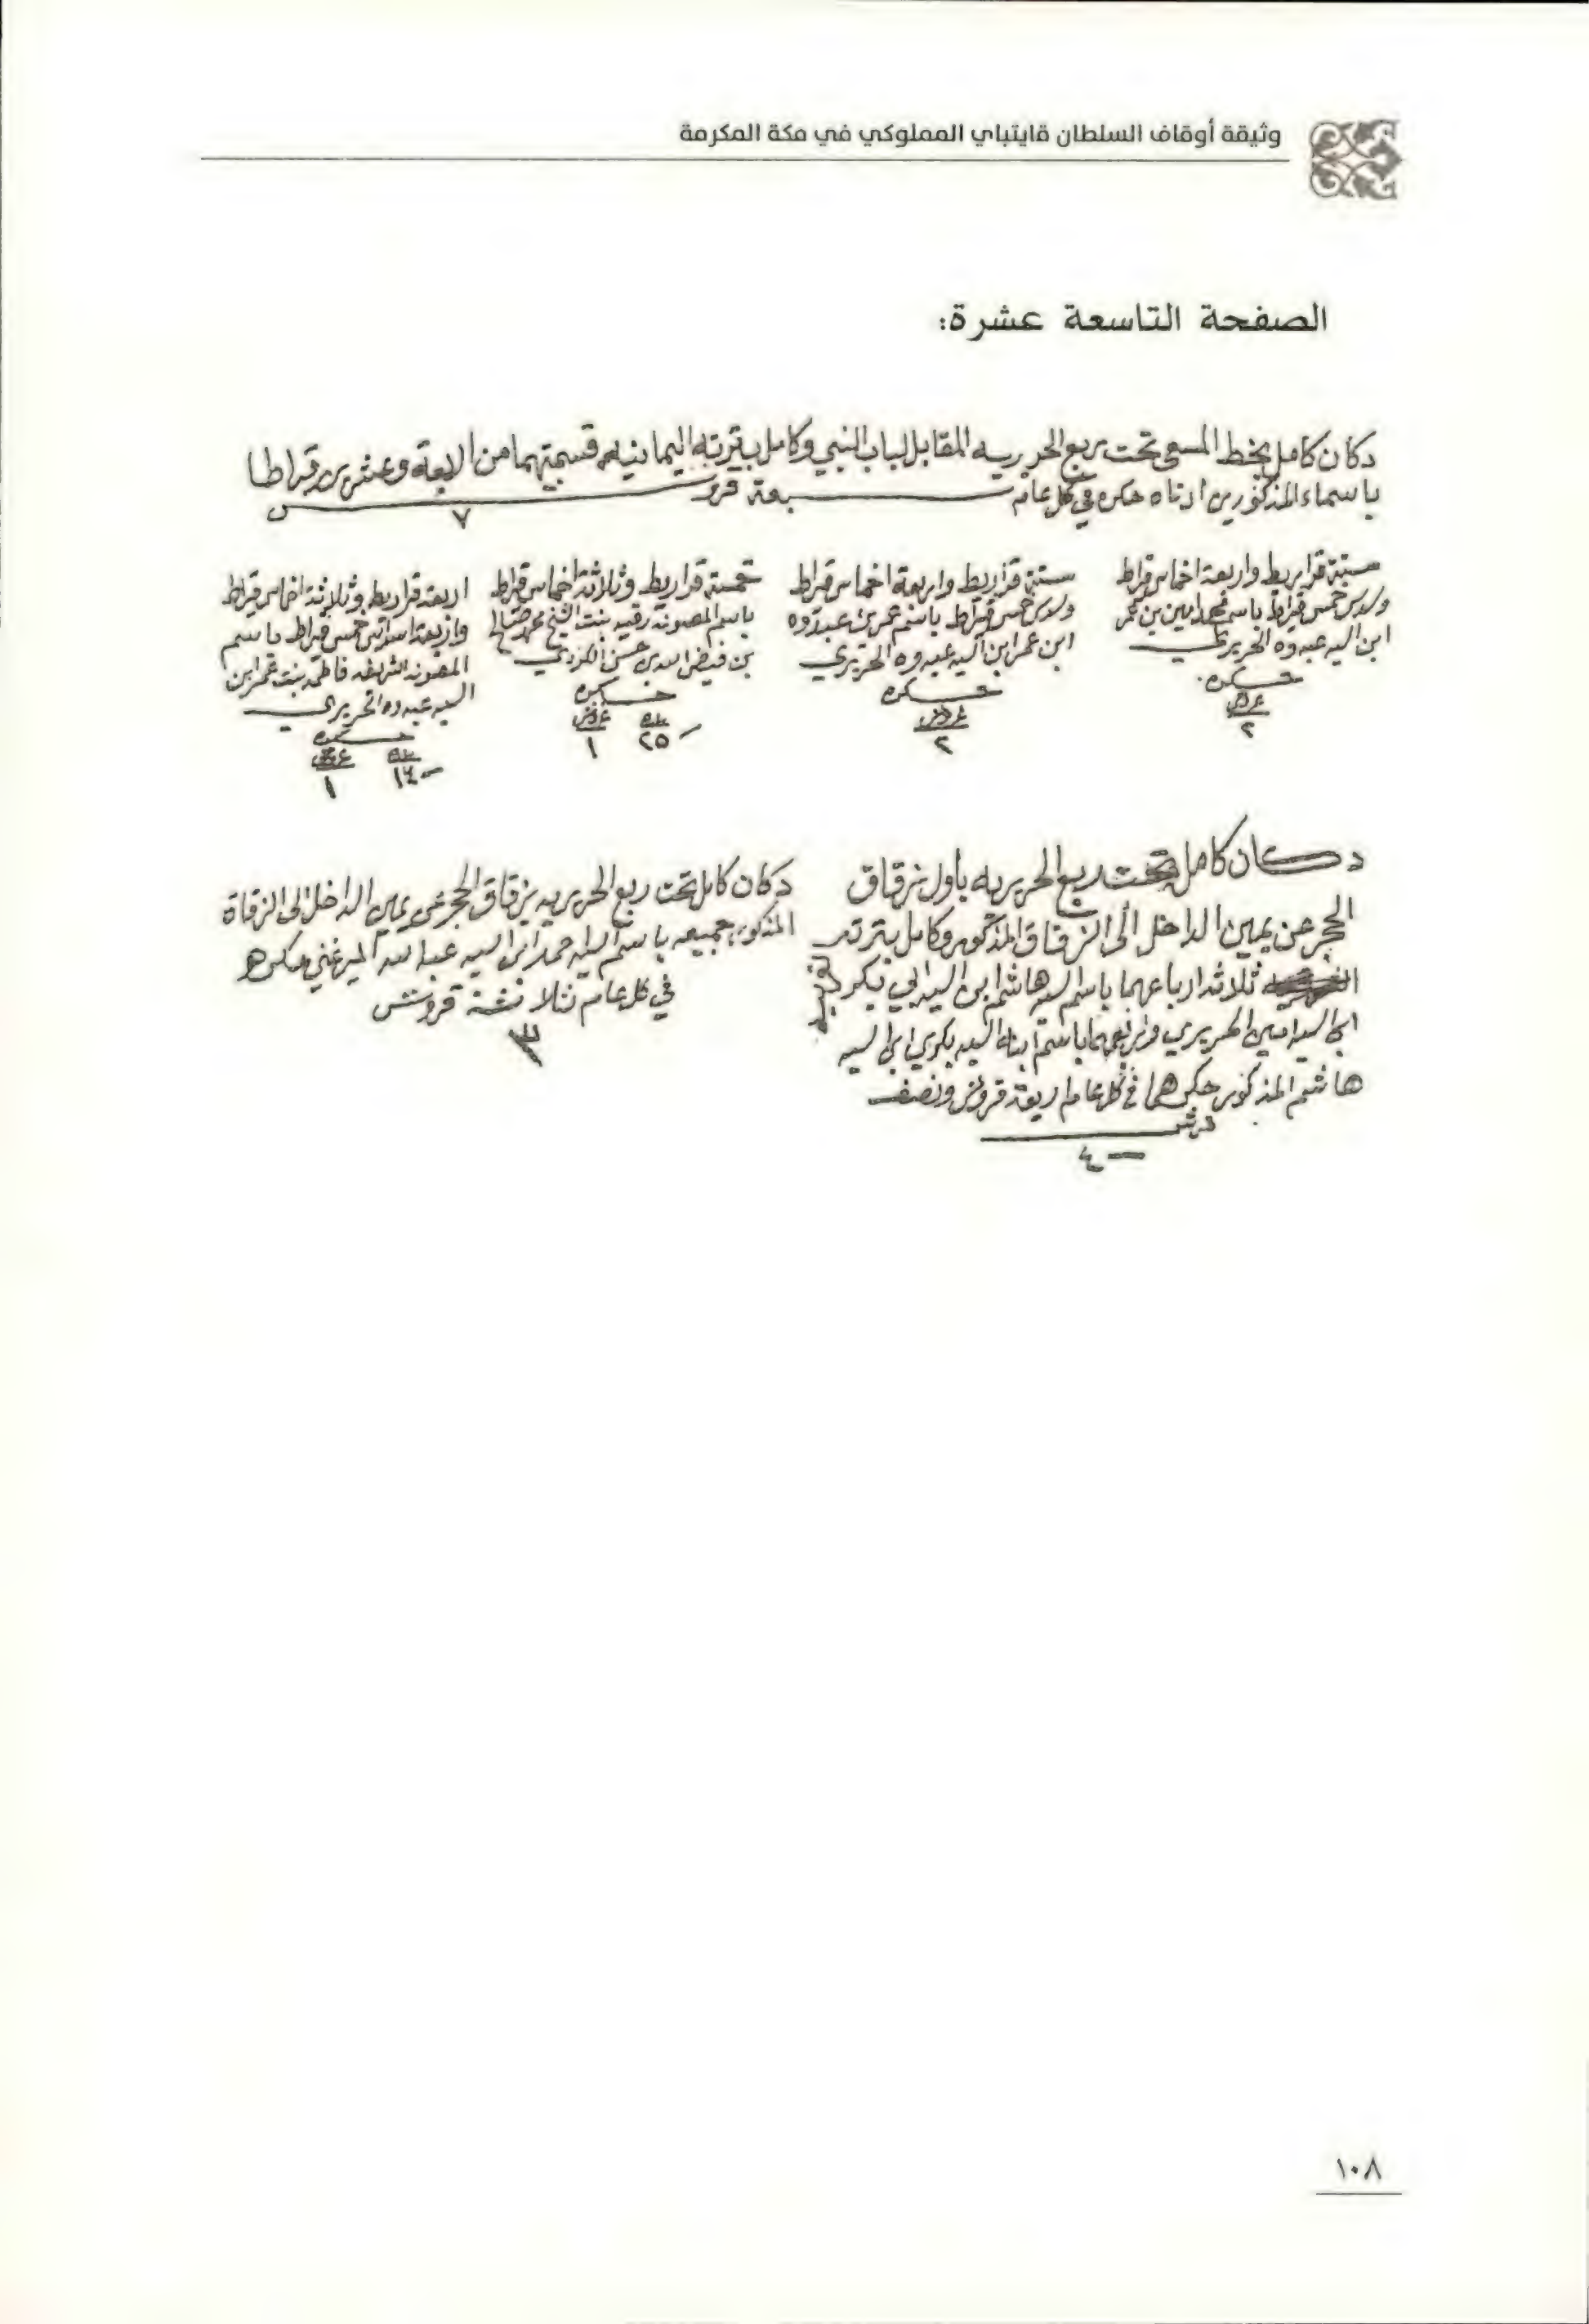 وثيقة أوقاف السلطان قايتباي المملوكي في مكة المكرمة
الصفحة التاسعة عشرة:
دكان كامل بخط المسعى تحت ربع الحريريه المقابل لباب النبي وكامل بترتبه اليمانيه قسمتهما من الاربعة وعشرين قراطا
باسماء المذكورين ادناه حكره في كل عام سبعة قروش
٧
ستة قراريط واربعة اخماس قراط
وسدس خمس قراط باسم محمد امين بن عمر
ابن السيد عبدوه الحريري
حكره
غروش
٢
ستة قراريط واربعة اخماس قراط
وسدس خمس قراط باسم عمر بن عبدوه
ابن عمر ابن السيد عبدوه الحريري
حكره
غروش
٢
خمسة قراريط وثلاثة اخماس قراط
باسم المصونه رقيه بنت الشيخ محمد صالح
بن فيض الله بن حسن الكردي
حكره
غروش
٢٥ ١
اربعة قراريط وثلاثة اخماس قراط
واربعة اسداس خمس قراط باسم
المصونه الشريفه فاطمه بنت عمر ابن
السيد عبدوه الحريري
حكره
١٤ ١
دكان كامل تحت ربع الحريريه بأول زقاق
الحجر عن يمين الداخل الى الزقاق المذكور وكامل بترته
ثلاثة ارباعهما باسم السيد هاشم ابن السيد ابي بكر
ابن السيد امين الحريري وربعهما باسم ابنه السيد بكري ابن السيد
هاشم المذكور حكرهما في كل عام اربعة قروش ونصف
قرش
٤
دكان كامل تحت ربع الحريريه بزقاق الحجر عن يمين الداخل الى الزقاق
المذكور جميعه باسم السيد حمد ابن السيد عبد الله الميرغني حكره
في كل عام ثلاثة قروش
٣
١٠٨